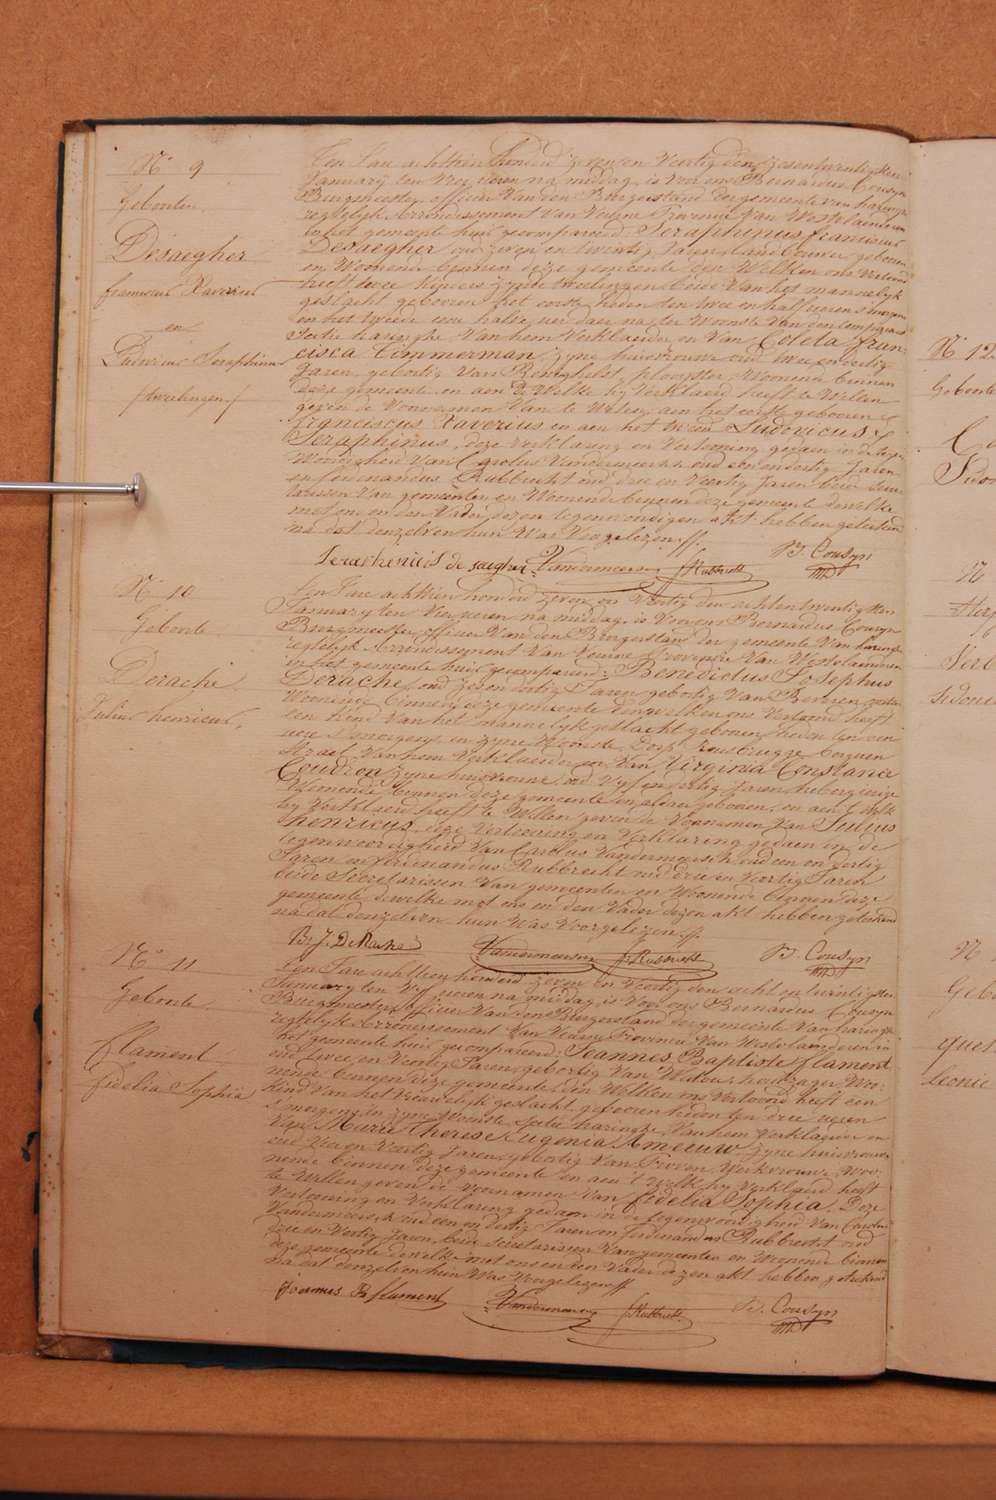 N° 9
Geboorte
Desaegher
franciscus Xaverius
en
Ludovicus Seraphinus
/tweelingen/
Ten Jare achttien honderd zeven en Veertig den zesentwintigsten
Januarij ten vier ueren na middag, is voor ons Bernardus Cousyn
Burgmeester, officier Van den Burgerstand der gemeente van haringe
regtelyk Arrondissement Van Veurne Provincie Van Westvlaenderen
in het gemeente huis gecompareerd Seraphinus franciscus
Desaegher oud zeven en twintig Jaren, Landbouwer geboren
en Woonende binnen deze gemeente den Welken ons Vertoond
heeft twee kinders zynde tweelingen beide Van het mannelyk
geslacht geboren het eerste heden ten twee en half uren s'morgens
en het tweede een halve uer daer na ter Woonste Van den comparant
Sectie haringhe Van hem Verklaerder en Van Coleta fran-
cisca Timmerman, zyne huisvrouwe oud twee en dertig
Jaren, gebortig Van Reninghelst, Woonende binnen
deze gemeente en aen de Welke hy Verklaerd heeft te Willen
geven de Voornamen Van te Weten aen het eerst geboorene
franciscus Xaverius en aen het tweede Ludovicus
Seraphinus, deze verklaring en Vertooning gedaen in de tegen
Woordigheid Van Carolus Vandermeersch oud een en dertig Jaren
en ferdinandus Rubbrecht oud drie en Veertig Jaren beide Secre
tarissen Van gemeenten en Woonende binnen deze gemeente dewelke
met ons en den Vader dezen tegenwoordigen akt hebben geteekend
na dat denzelven hun Was Voorgelezen.
Seraphenus de saegher Vandermeersch f. Rubbrecht B. Cousyn
N° 10
Geboorte
Derache
Julius henricus.
Ten Jare achttien honderd zeven en Veertig den achtentwintigsten
Januarij ten Vier ueren na middag, is Voor ons Bernardus Cousyn
Burgmeester, officier Van den Burgerstand der gemeente Van haringhe
regtelyk Arrondissement Van Veurne Provincie Van Westvlaenderen
in het gemeente huis gecompareerd: Benedictus Josephus
Derache, oud zes en dertig Jaren gebortig Van Beveren
Woonende binnen deze gemeente den welken ons Vertoond heeft
een kind Van het mannelyk geslacht geboren heden ten een
uere s'morgens in zyne Woonste Dorp Rousbrugge
straet Van hem Verklaerder en Van Virginia Constance
Coudron zyne huisvrouwe oud Vyf en dertig Jaren herbergierige
Woonende binnen deze gemeente en aldaer geboren, en aen 't Welk
hy Verklaerd heeft te Willen geven de Voornamen Van Julius
henricus, deze Vertooning en Verklaring gedaen in de
tegenwoordigheid Van Carolus Vandermeersch oud een en dertig
Jaren en ferdinandus Rubbrecht oud drie en Veertig Jaren
beide Secretarissen Van gemeenten en Woonende binnen deze
gemeente dewelke met ons en den Vader dezen akt hebben geteekend
na dat denzelven hun Was Voorgelezen.
B. J. De Rache Vandermeersch f. Rubbrecht B. Cousyn
N° 11
Geboorte
flament
fidelia Sophia
Ten Jare achttien honderd zeven en Veertig den acht en twintigsten
Januarij ten Vyf ueren na middag, is Voor ons Bernardus Cousyn
Burgmeester, officier Van den Burgerstand der gemeente Van haringhe
regtelyk Arrondissement Van Veurne Provincie Van Westvlaenderen in
het gemeente huis gecompareerd: Joannes Baptiste flament
oud twee en Veertig Jaren, gebortig Van Watou, houtzager Woo-
nende binnen deze gemeente, den Welken ons Vertoond heeft een
kind Van het Vrouwelyk geslacht geboren heden ten drie ueren
s'morgens in zyne Woonste Sectie haringhe, Van hem Verklaerder en
Van Marie Therese Eugenia Ameeuw, zyne huisvrouwe
oud Vier en Veertig Jaren, gebortig Van Proven, Werkvrouwe, Woo-
nende binnen deze gemeente en aen 't Welk hy Verklaerd heeft
te Willen geven de Voornamen Van fidelia Sophia. Deze
Vertooning en Verklaring gedaen in de tegenwoordigheid Van Carolus
Vandermeersch oud een en dertig Jaren en ferdinandus Rubbrecht oud
drie en Veertig Jaren, beide Secretarissen Van gemeenten en Woonende binnen
deze gemeente dewelke met ons en den Vader dezen akt hebben geteekend
na dat denzelven hun Was Voorgelezen
Joannes B flament Vandermeersch f. Rubbrecht B. Cousyn
N° 12
Geboorte
N
N
Gebo
Leonie